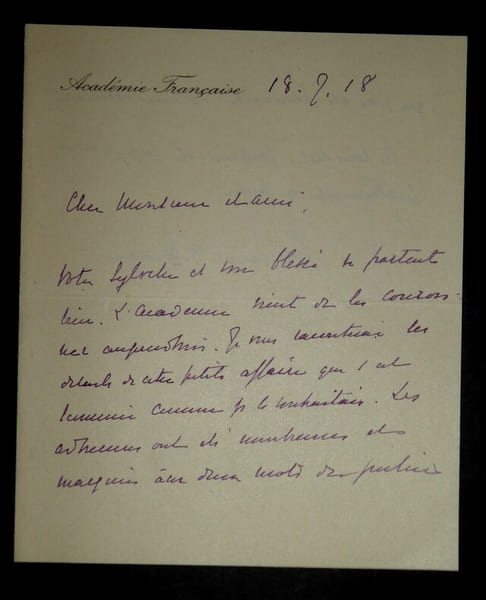 Académie Française 18.7.18
Cher Monsieur et ami,
Votre Sylvestre et son blessé se portent
bien. L'Académie vient de les couron-
ner aujourd'hui. Je vous raconterai les
détails de cette petite affaire qui s'est
terminée comme je le souhaitais. Les
adhésions ont été nombreuses et
deux mots de